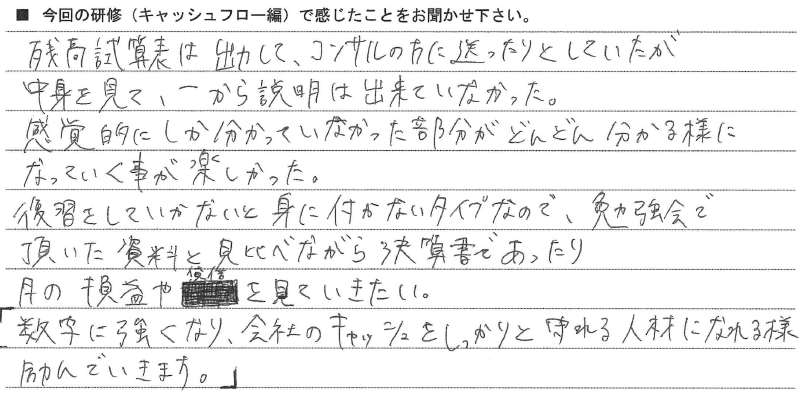 ■ 今回の研修（キャッシュフロー編）で感じたことをお聞かせ下さい。
残高試算表は出力して、コンサルの方に送ったりとしていたが
中身を見て、一から説明は出来ていなかった。
感覚的にしか分かっていなかった部分がどんどん分かる様に
なっていく事が楽しかった。
復習をしていかないと身に付かないタイプなので、勉強会で
頂いた資料と見比べながら決算書であったり
月の損益や貸借を見ていきたい。
「数字に強くなり、会社のキャッシュをしっかりと守れる人材になれる様
励んでいきます。」